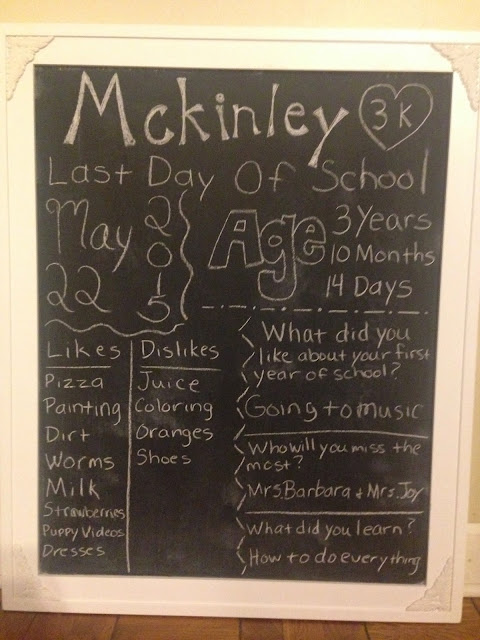 Mckinley 3K
Last Day Of School
May
22
2015
Age
3 Years
10 Months
14 Days
Likes
Pizza
Painting
Dirt
Worms
Milk
Strawberries
Puppy Videos
Dresses
Dislikes
Juice
Coloring
Oranges
Shoes
What did you
like about your first
year of school?
Going to music
Who will you miss the
most?
Mrs. Barbara & Mrs. Joy
What did you learn?
How to do everything